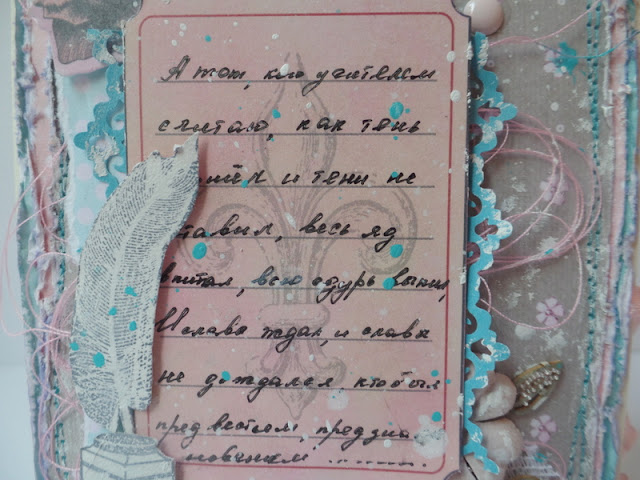 А тот, кто учителем
считаю, как тень
шёл и тени не
ставил, весь яд
впитал, всю одурь выпил,
И славы ждал, и славы
не дождался, кто был
предвестьем, предзна